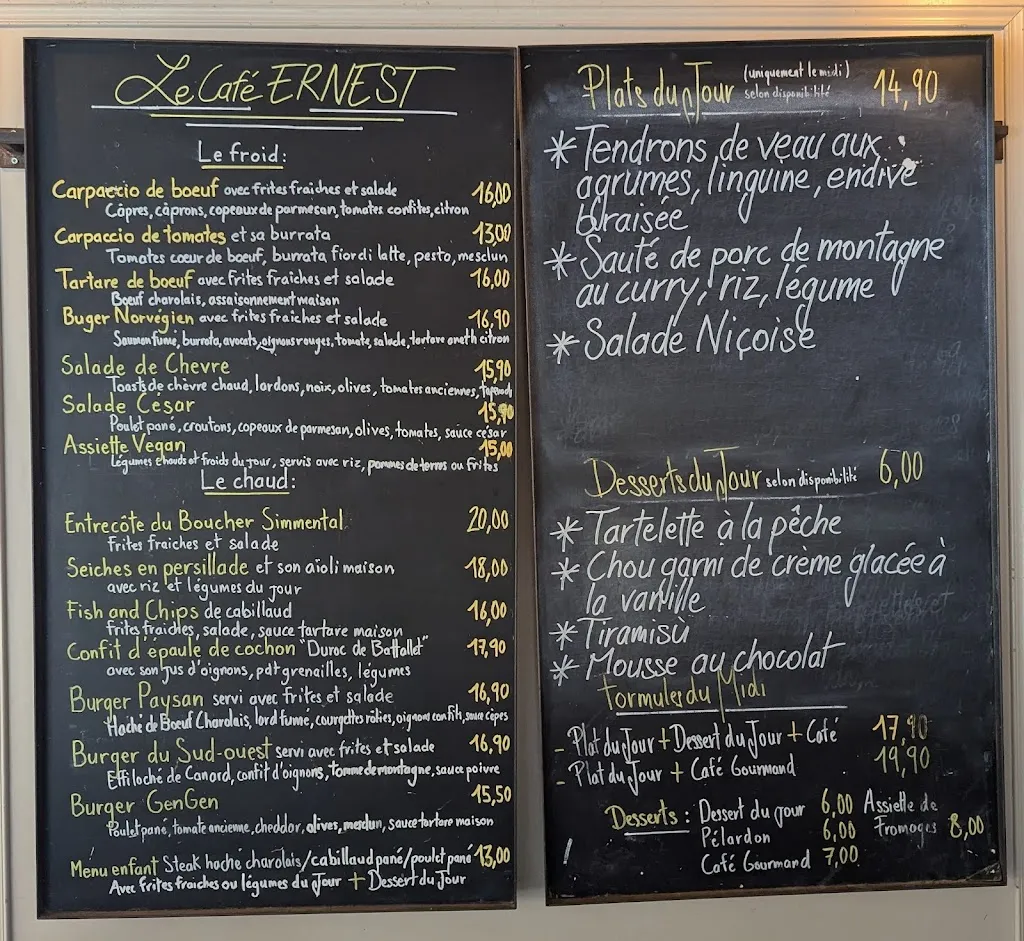 Le Café ERNEST
Le froid:
Carpaccio de boeuf avec frites fraiches et salade 16,00
Câpres, câprons, copeaux de parmesan, tomates confites, citron
Carpaccio de tomates et sa burrata 13,00
Tomates cœur de bœuf, burrata fior di latte, pesto, mesclun
Tartare de boeuf avec frites fraiches et salade 16,00
Bœuf charolais, assaisonnement maison
Buger Norvégien avec frites fraiches et salade 16,90
Saumon fumé, burrata, avocats, oignons rouges, tomate, salade, tartare aneth citron
Salade de Chevre 15,90
Toasts de chèvre chaud, lardons, noix, olives, tomates anciennes,
Salade César 15,90
Poulet pané, croutons, copeaux de parmesan, olives, tomates, sauce césar
Assiette Vegan 15,00
Légumes chauds et froids du jour, servis avec riz, pommes de terres ou frites
Le chaud:
Entrecôte du Boucher Simmental 20,00
frites fraiches et salade
Seiches en persillade et son aioli maison 18,00
avec riz et légumes du jour
Fish and Chips de cabillaud 16,00
frites fraiches, salade, sauce tartare maison
Confit d'épaule de cochon "Duroc de Batallé" 17,90
avec son jus d'oignons, pdt grenailles, légumes
Burger Paysan servi avec frites et salade 16,90
Haché de Bœuf Charolais, lard fume, courgettes rôties, oignons confits, sauce cèpes
Burger du Sud-ouest servi avec frites et salade 16,90
Effiloché de Canard, confit d'oignons, tomme de montagne, sauce poivre
Burger GenGen 15,50
Poulet pané, tomate ancienne, cheddar, olives, mesclun, sauce tartare maison
Menu enfant Steak haché charolais/cabillaud pané/poulet pané 13,00
Avec frites fraiches ou légumes du Jour + Dessert du Jour
Plats du Jour (uniquement le midi) selon disponibilité 14,90
* Tendrons de veau aux
agrumes, linguine, endive
braisée
* Sauté de porc de montagne
au curry, riz, légume
* Salade Niçoise
Desserts du Jour selon disponibilité 6,00
* Tartelette à la pêche
* Chou garni de crème glacée à
la vanille
* Tiramisù
* Mousse au chocolat
formules du Midi
- Plat du Jour + Dessert du Jour + Café 17,90
- Plat du Jour + Café Gourmand 19,90
Desserts : Dessert du jour 6,00
Pélardon 6,00
Café Gourmand 7,00
Assiette de
Fromages 8,00